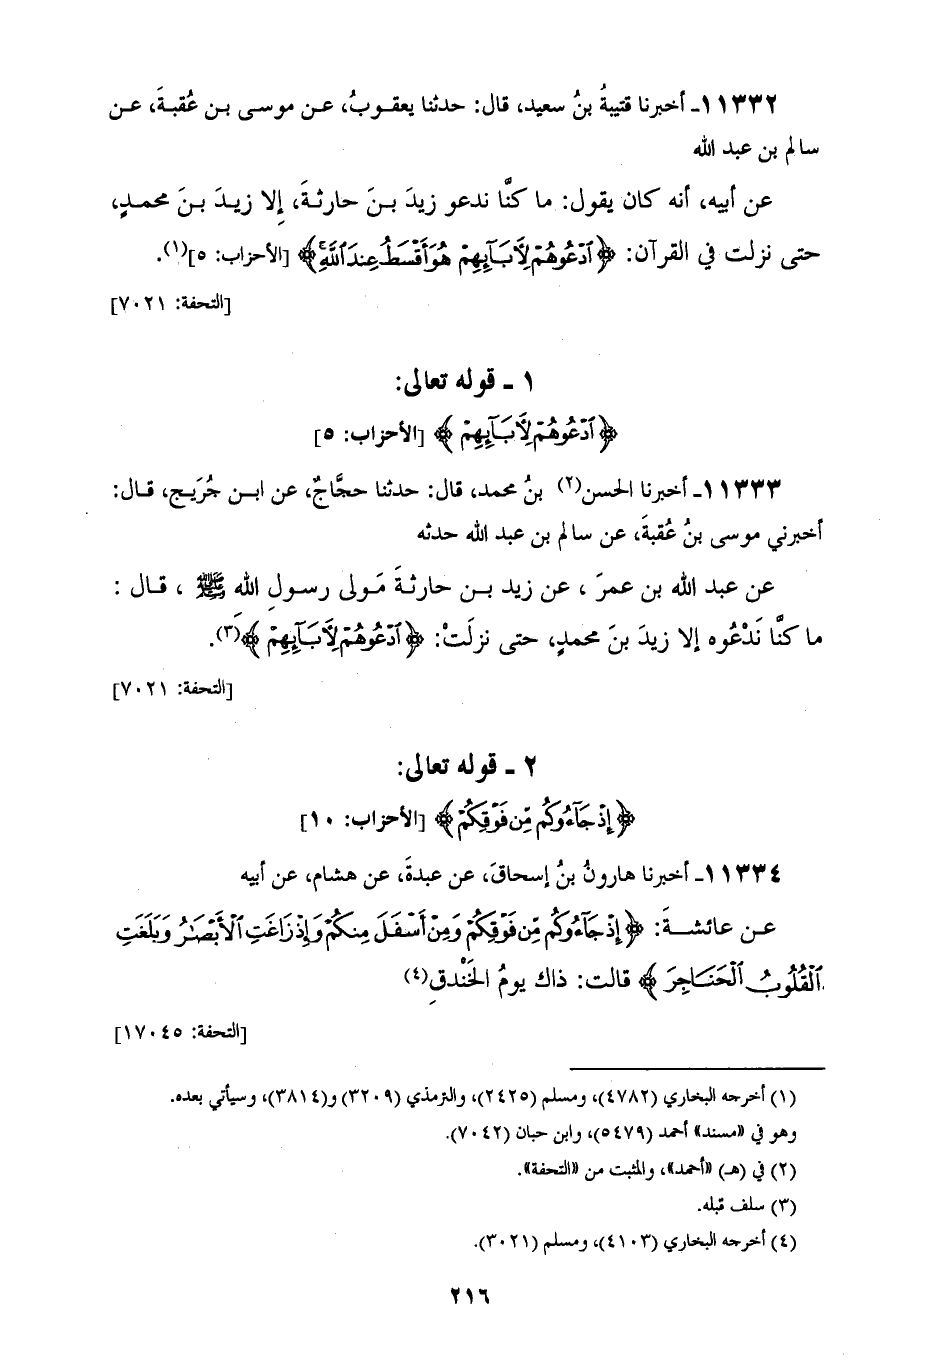 ١١٣٣٢ـ أخبرنا قتيبةُ بنُ سعيد، قال: حدثنا يعقوبُ، عن موسى بن عُقبةَ، عن
سالم بن عبد الله
عن أبيه، أنه كان يقول: ما كنَّا ندعو زيدَ بنَ حارثةَ، إلا زيدَ بنَ محمدٍ،
حتى نزلت في القرآن: ﴿ٱدْعُوهُمْ لِأَبَآئِهِمْ هُوَ أَقْسَطُ عِندَ ٱللَّهِ﴾ [الأحزاب: ٥](١).
[التحفة: ٧٠٢١]
١ ـ قوله تعالى:
﴿ٱدْعُوهُمْ لِأَبَآئِهِمْ﴾ [الأحزاب: ٥]
١١٣٣٣ـ أخبرنا الحسن(٢) بنُ محمد، قال: حدثنا حجَّاجٌ، عن ابن جُرَيج، قال:
أخبرني موسى بنُ عُقبةَ، عن سالم بن عبد الله حدثه
عن عبد الله بن عمرَ ، عن زيد بن حارثةَ مَولى رسولِ الله ﷺ ، قال :
ما كنَّا نَدْعُوه إلا زيدَ بنَ محمدٍ، حتى نزلَتْ: ﴿ٱدْعُوهُمْ لِأَبَآئِهِمْ﴾(٣).
[التحفة: ٧٠٢١]
٢ ـ قوله تعالى:
﴿إِذْ جَآءُوكُم مِّن فَوْقِكُمْ﴾ [الأحزاب: ١٠]
١١٣٣٤ـ أخبرنا هارونُ بنُ إسحاقَ، عن عبدةَ، عن هشام، عن أبيه
عن عائشةَ: ﴿إِذْ جَآءُوكُم مِّن فَوْقِكُمْ وَمِنْ أَسْفَلَ مِنكُمْ وَإِذْ زَاغَتِ ٱلْأَبْصَٰرُ وَبَلَغَتِ
ٱلْقُلُوبُ ٱلْحَنَاجِرَ﴾ قالت: ذاك يومُ الخَنْدقِ(٤)
[التحفة: ١٧٠٤٥]
(١) أخرجه البخاري (٤٧٨٢)، ومسلم (٢٤٢٥)، والترمذي (٣٢٠٩) و(٣٨١٤)، وسيأتي بعده.
وهو في «مسند» أحمد (٥٤٧٩)، وابن حبان (٧٠٤٢).
(٢) في (هـ) «أحمد»، والمثبت من «التحفة».
(٣) سلف قبله.
(٤) أخرجه البخاري (٤١٠٣)، ومسلم (٣٠٢١).
٢١٦